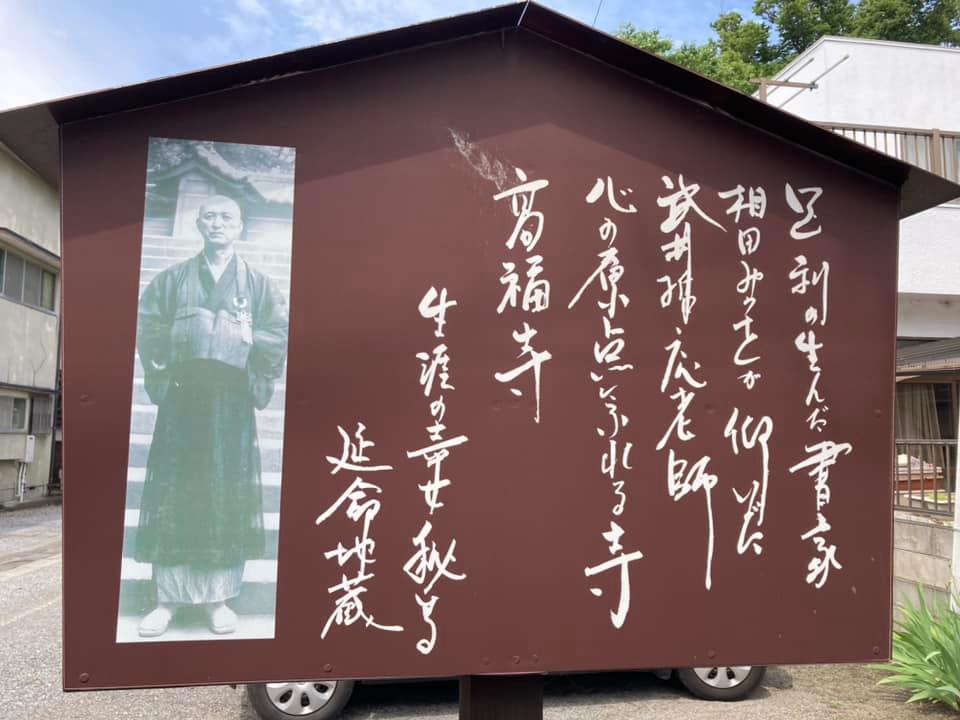 足利の生んだ書家
相田みつをが仰いだ
武井哲応老師
心の原点にふれる寺
高福寺
生涯の幸せ
延命地蔵